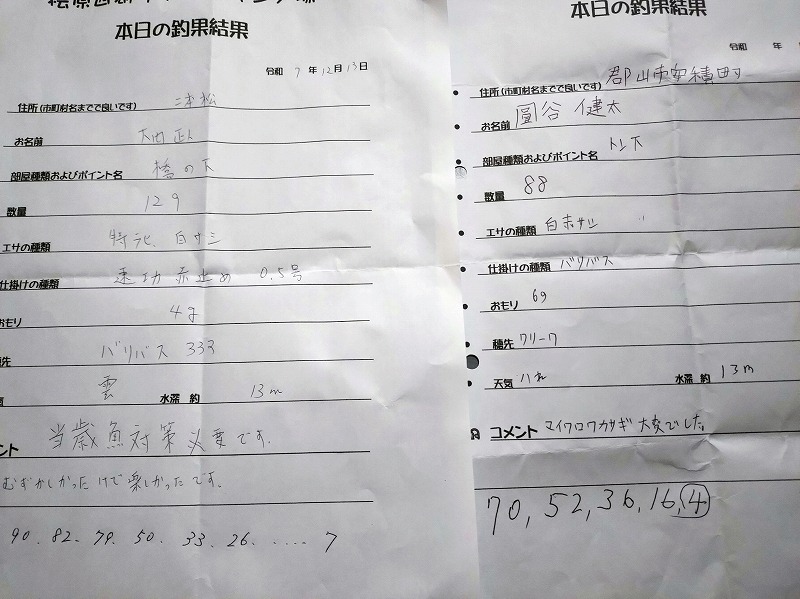 本日の釣果結果
令和 7 年 12 月 13 日
住所(市町村名までで良いです) 二本松
お名前 大内 正人
部屋種類およびポイント名 橋の下
数量 129
エサの種類 特ラビ 白サシ
仕掛けの種類 速功 赤止め 0.5号
おもり 4g
穂先 バリバス 333
天気 雲 水深 約 13m
コメント 当歳魚対策必要です。
むずかしかったけど楽しかったです。
90. 82. 79. 50. 33. 26. ..... 7
本日の釣果結果
令和 年
住所(市町村名までで良いです) 郡山市安積町
お名前 圓谷 健太
部屋種類およびポイント名 トン下
数量 88
エサの種類 白赤サシ
仕掛けの種類 バリバス
おもり 6g
穂先 クリーク
天気 ハれ 水深 約 13m
コメント マイクロワカサギ 大変でした。
70, 52, 36, 16, 4